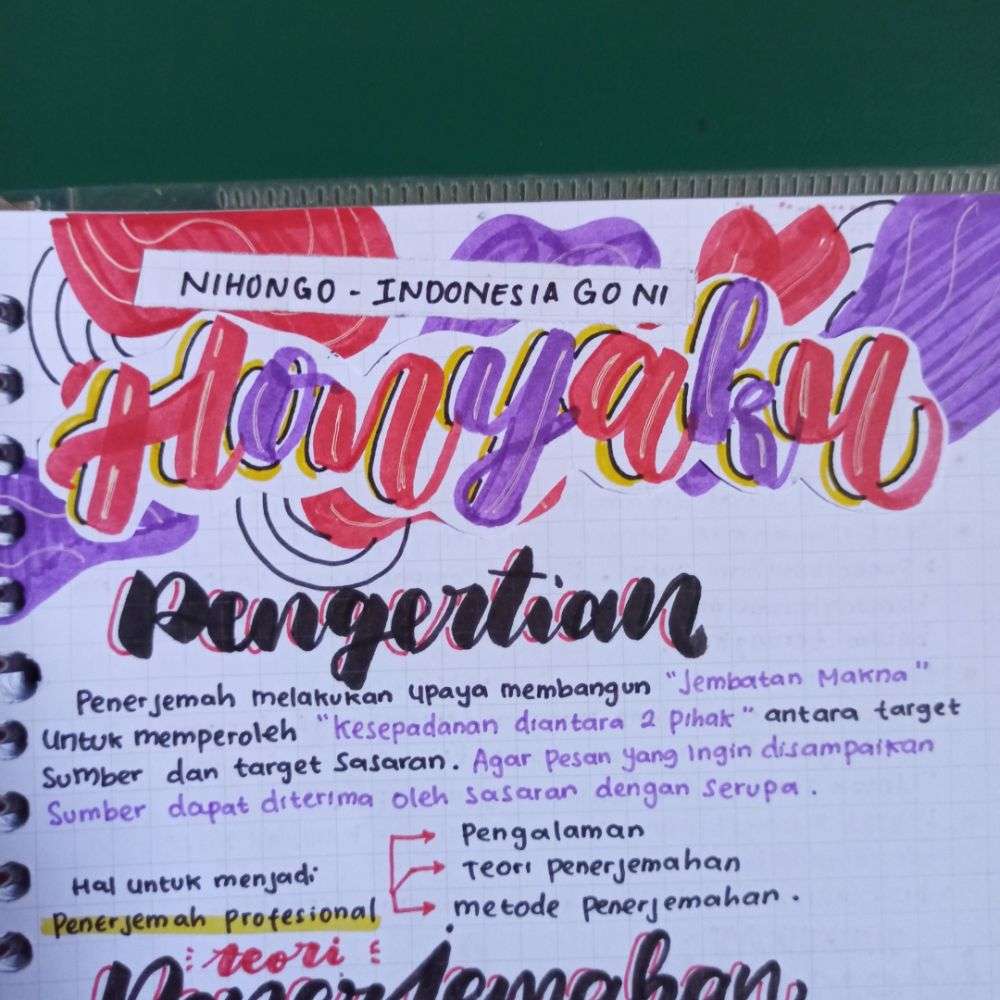 NIHONGO - INDONESIA GO NI
Honyaku
Pengertian
Penerjemah melakukan upaya membangun "Jembatan Makna"
untuk memperoleh "kesepadanan diantara 2 pihak" antara target
Sumber dan target sasaran. Agar pesan yang ingin disampaikan
Sumber dapat diterima oleh sasaran dengan serupa.
Pengalaman
Teori penerjemahan
Hal untuk menjadi
metode penerjemahan.
Penerjemah profesional
teori
Penerjemahan